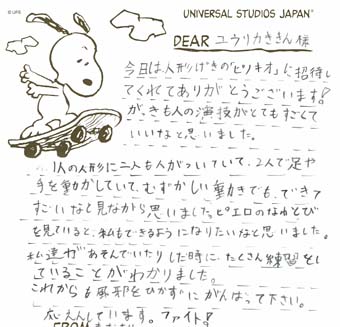 © UFS
UNIVERSAL STUDIOS JAPAN®
DEAR ユウリカききん様
今日は人形げきの「ピノキオ」に招待し
てくれてありがとうございます!
が、きも人の演技がとてもすごくて
いいなと思いました。
1人の人形に二人も人がついていて、2人で足や
手を動かしていて、むずかしい動きでも、できて
すごいなと見ながら思いました。ピエロのなわとび
を見ていると、私もできるようになりたいなと思いました。
私達があそんでいたりした時に、たくさん練習をし
ていることがわかりました。
これからも風邪をひかずにがんばって下さい。
応えんしています。ファイト!
FROM